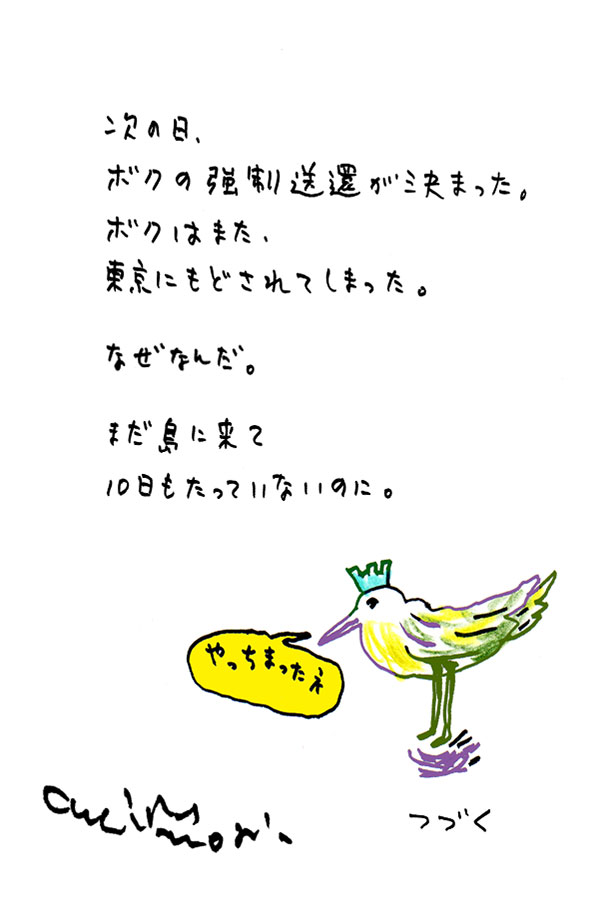 次の日、
ボクの強制送還が決まった。
ボクはまた、
東京にもどされてしまった。
なぜなんだ。
まだ島に来て
10日もたっていないのに。
やっちまったネ
つづく